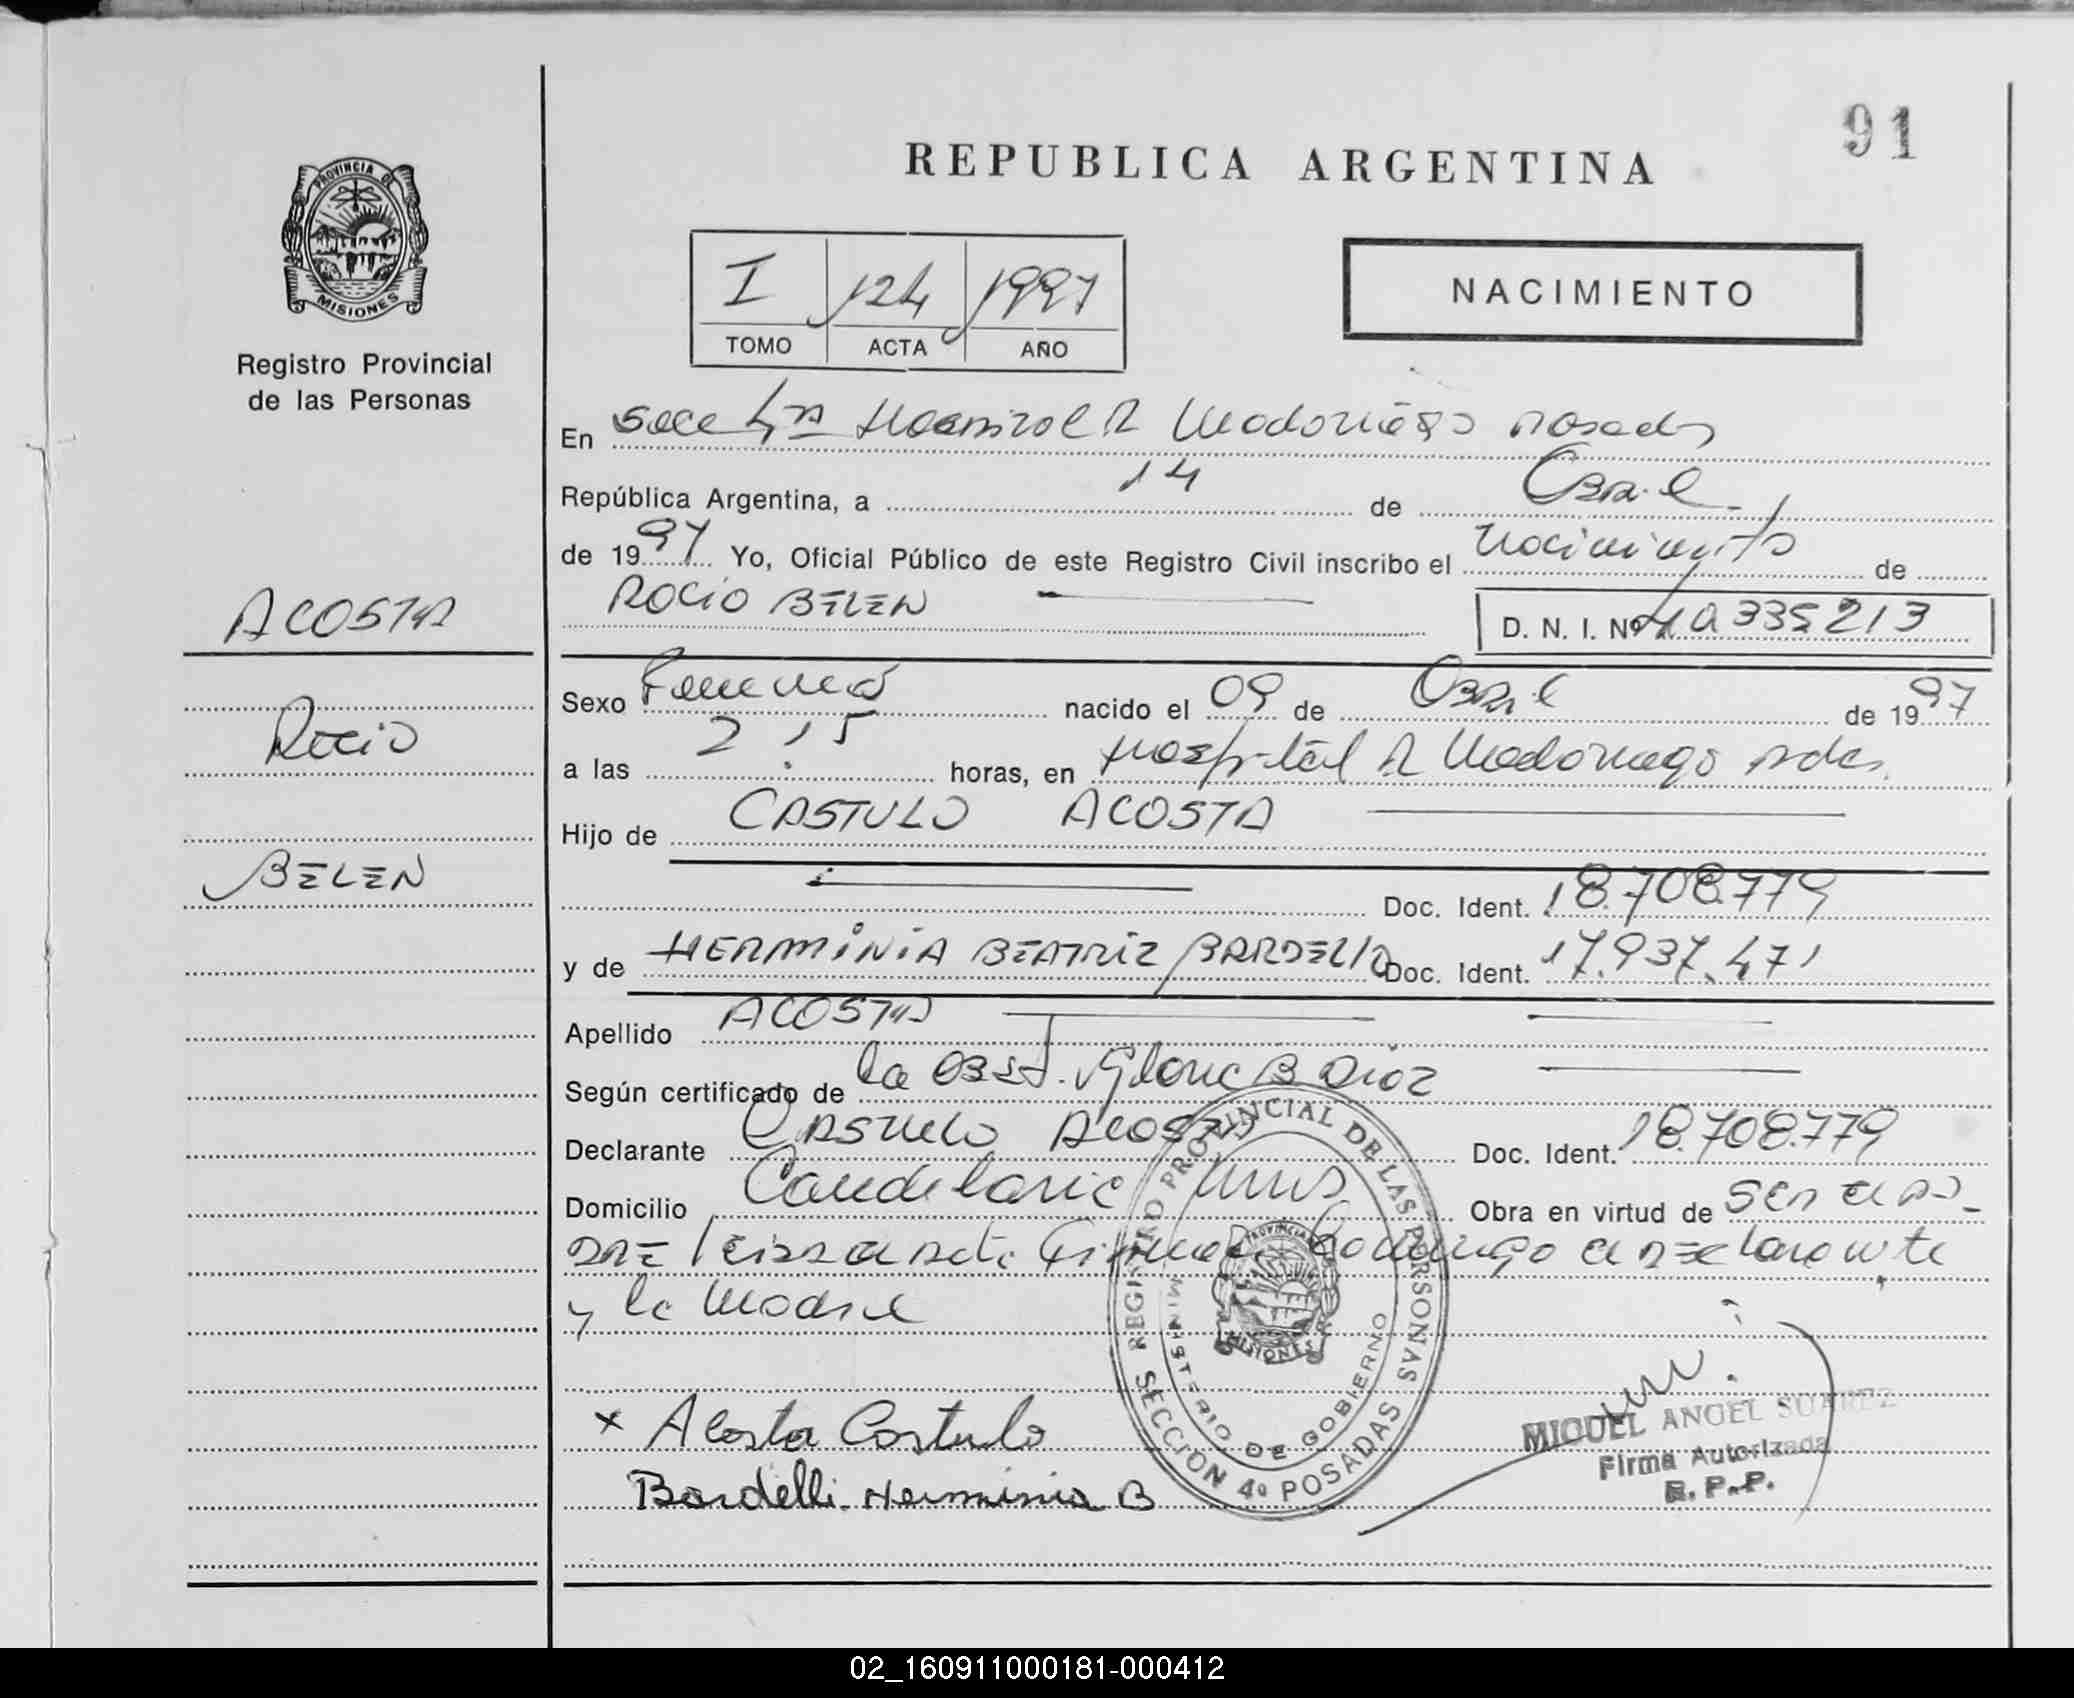 91
REPUBLICA ARGENTINA
PROVINCIA DE
MISIONES
Registro Provincial
de las Personas
I 124 1997
TOMO ACTA AÑO
NACIMIENTO
En Secc 4ta Hospital R Madariaga Posadas
República Argentina, a 14 de Abril
de 1997 Yo, Oficial Público de este Registro Civil inscribo el nacimiento de
ROCIO BELEN
D. N. I. Nº 40335213
ACOSTA
Rocio
BELEN
Sexo Femenino nacido el 09 de Abril de 1997
a las 2:15 horas, en Hospital R Madariaga Pdas.
Hijo de CASTULO ACOSTA
Doc. Ident. 18.708.779
y de HERMINIA BEATRIZ BARDELLI Doc. Ident. 17.937.471
Apellido ACOSTA
Según certificado de la Obst. Gloria B Diaz
Declarante CASTULO ACOSTA Doc. Ident. 18.708.779
Domicilio Candelaria Mns. Obra en virtud de ser el pa-
dre Firman el declarante
y la Madre
x Acosta Castulo
Bardelli Herminia B
REGISTRO PROVINCIAL DE LAS PERSONAS
MINISTERIO DE GOBIERNO
PROVINCIA
MISIONES
SECCION 4º POSADAS
MIGUEL ANGEL SUAREZ
Firma Autorizada
R. P. P.
02_160911000181-000412